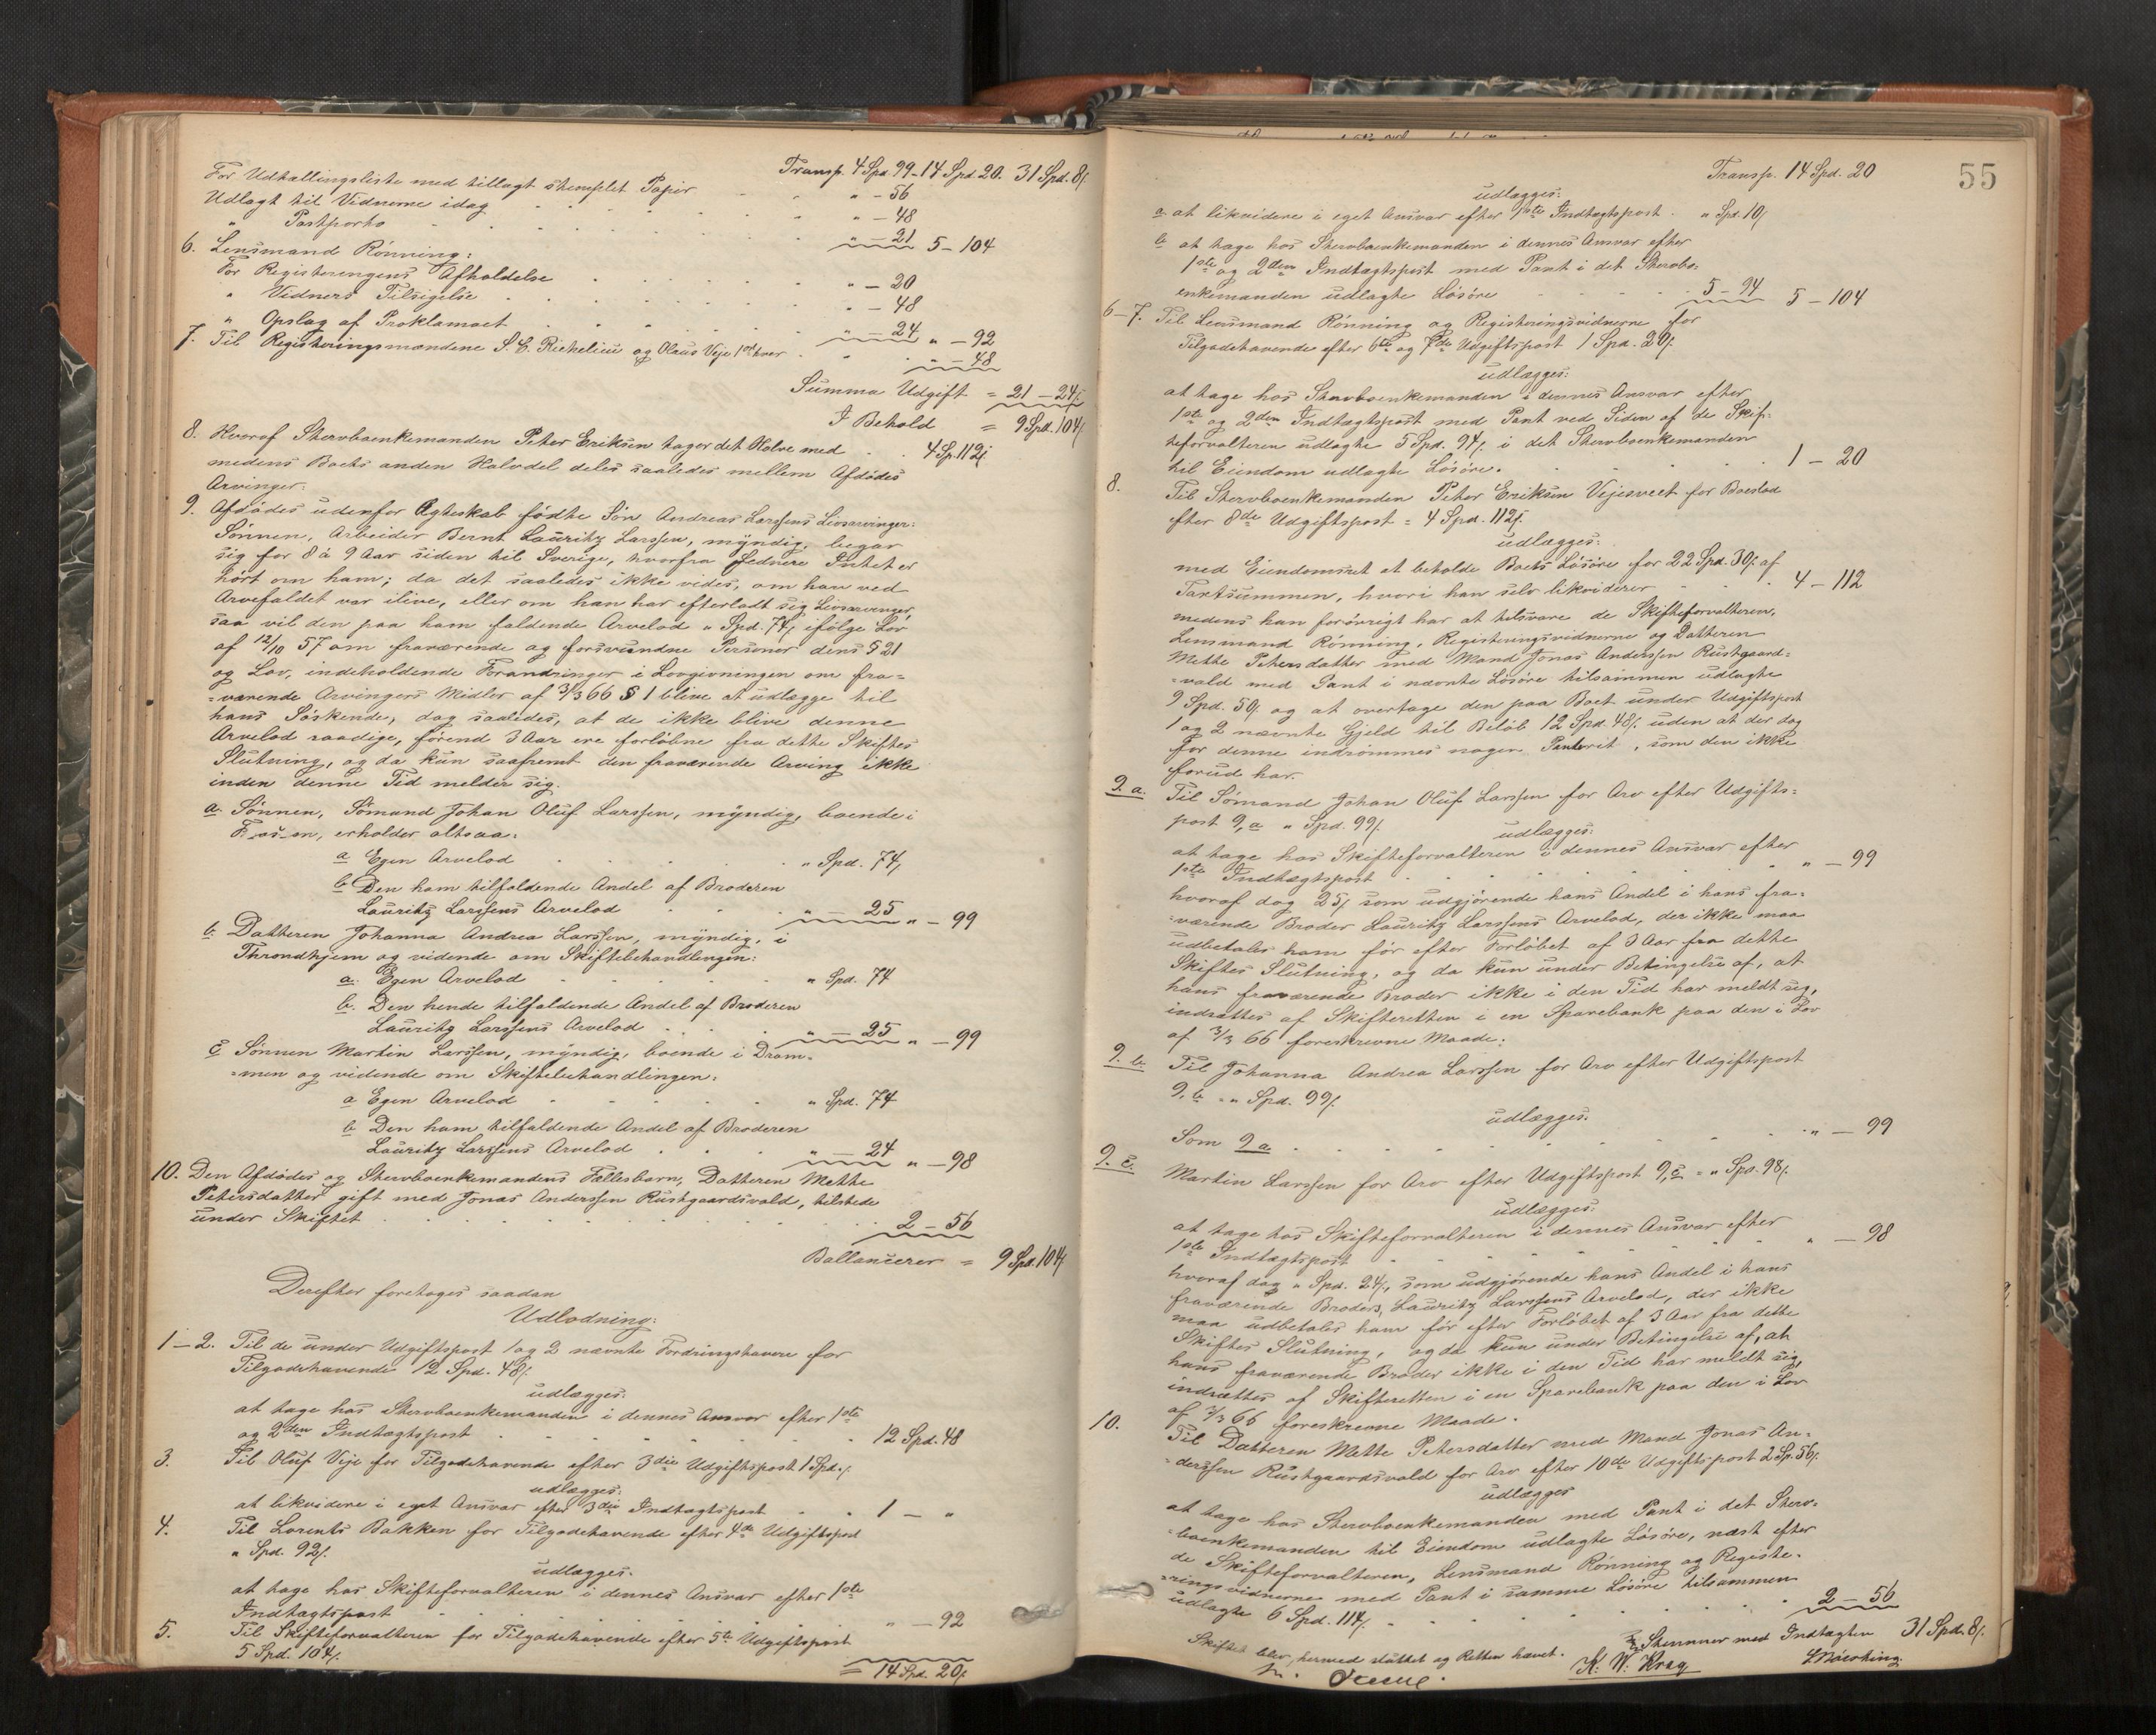 Transp. 4 Spd. 99 - 14 Spd. 20. 31 Spd. 8/.
For Udtællingsliste med tillagt stemplet Papir " - 56
Udlagt til Vidnerne idag " - 48
" Postporto " - 21 5 - 104
6. Lensmand Rönning:
For Registeringens Afholdelse " - 20
" Vidners Tilsigelse " - 48
" Opslag af Proklamaet " - 24 " - 92
7. Til Registeringsmændene S. C. Rickelieu og Olaus Veje 1 ort hver " - 48
Summa Udgift = 21 - 24/.
I Behold = 9 Spd. 104/.
8. Hvoraf Stervboenkemanden Peter Eriksen tager det Halve med 4 Sp. 112/.
medens Boets anden Halvdel deles saaledes mellem Afdødes
Arvinger:
9. Afdødes udenfor Ægteskab fødte Søn Andreas Larsens Livsarvinger:
Sønnen, Arbeider Bernt Lauritz Larssen, myndig, begav
sig for 8 à 9 Aar siden til Sverige, hvorfra Sednere Intet er
hørt om ham; da det saaledes ikke vides, om han ved
Arvefaldet var ilive, eller om han har efterladt sig Livsarvinger,
saa vil den paa ham faldende Arvelod " Spd. 74/, ifølge Lov
af 12/10 57 om fraværende og forsvundne Personer dens § 21
og Lov, indeholdende Forandringer i Lovgivningen om fra=
=værende Arvingers Midler af 3/3 66 § 1 blive at udlægge til
hans Söskende, dog saaledes, at de ikke blive denne
Arvelod raadige, förend 3 Aar ere forløbne fra dette Skiftes
Slutning, og da kun saafremt den fraværende Arving ikke
inden denne Tid melder sig.
a. Sønnen, Sømand Johan Oluf Larssen, myndig, boende i
erholder altsaa:
a Egen Arvelod " Spd. 74/,
b Den ham tilfaldende Andel af Broderen
Lauritz Larssens Arvelod " - 25 " - 99
b. Datteren Johanna Andrea Larssen, myndig, i
Throndhjem og vidende om Skiftebehandlingen:
a. Egen Arvelod " Spd. 74
b. Den hende tilfaldende Andel af Broderen
Lauritz Larssens Arvelod " - 25 " - 99
c Sønnen Martin Larssen, myndig, boende i Dram=
=men og vidende om Skiftebehandlingen:
a Egen Arvelod " Spd. 74
b Den ham tilfaldende Andel af Broderen
Lauritz Larssens Arvelod " - 24 " - 98
10. Den Afdødes og Stervboenkemandens Fællesbarn, Datteren Mette
Petersdatter gift med Jonas Anderssen Rustgaardsvald, tilstede
under Skiftet 2 - 56
Ballancerer = 9 Spd. 104/.
Derefter foretoges saadan
Udlodning:
1 - 2. Til de under Udgiftspost 1 og 2 nævnte Fordringshavere for
Tilgodehavende 12 Spd. 48/.
udlægges:
at tage hos Stervboenkemanden i dennes Ansvar efter 1ste
og 2den Indtægtspost 12 Spd. 48
3. Til Oluf Veje for Tilgodehavende efter 3die Udgiftspost 1 Spd. /.
udlægges:
at likvidere i eget Ansvar efter 3die Indtægtspost 1 - "
4. Til Lorents Bakken for Tilgodehavende efter 4de Udgiftspost
" Spd. 92/.
udlægges:
at tage hos Skifteforvalteren i dennes Ansvar efter 1ste
Indtægtspost " - 92
5. Til Skifteforvalteren for Tilgodehavende efter 5te Udgiftspost
5 Spd. 104/.
= 14 Spd. 20/.
55
Transp. 14 Spd. 20
udlægges:
a at likvidere i eget Ansvar efter 1ste Indtægtspost. " Spd. 10/
b at tage hos Stervboenkemanden i dennes Ansvar efter
1ste og 2den Indtægtspost med Pant i det Stervbo=
enkemanden udlagte Løsøre 5 - 94 5 - 104
6-7. Til Lensmand Rönning og Registeringsvidnerne for
Tilgodehavende efter 6te og 7de Udgiftspost 1 Spd. 20/.
udlægges:
at tage hos Stervboenkemanden i dennes Ansvar efter
1ste og 2den Indtægtspost med Pant ved Siden af de Skif=
teforvalteren udlagte 5 Spd. 94/. i det Stervboenkemanden
til Eiendom udlagte Løsøre. 1 - 20
8. Til Stervboenkemanden Peter Eriksen Vejesveet for Boeslod
efter 8de Udgiftspost = 4 Spd. 112/.
udlægges:
med Eiendomsret at beholde Boets Løsøre for 22 Spd. 30/. af
Taxtsummen, hvori han selv likviderer 4 - 112
medens han forövrigt har at tilsvare de Skifteforvalteren,
Lensmand Rönning, Registeringsvidnerne og Datteren
Mette Petersdatter med Mand Jonas Anderssen Rustgaard=
=vald med Pant i nævnte Løsøre tilsammen udlagte
9 Spd. 50/. og at overtage den paa Boet under Udgiftspost
1 og 2 nævnte Gjeld til Beløb 12 Spd. 48/. uden at der dog
for denne indrømmes nogen Panteret, som den ikke
forud har.
9. a. Til Sømand Johan Oluf Larssen for Arv efter Udgifts=
post 9, a " Spd. 99/.
udlægges:
at tage hos Skifteforvalteren i dennes Ansvar efter
1ste Indtægtspost " - 99
hvoraf dog 25/ som udgjørende hans Andel i hans fra=
=værende Broder Lauritz Larssens Arvelod, der ikke maa
udbetales ham før efter Forløbet af 3 Aar fra dette
Skiftes Slutning, og da kun under Betingelse af, at
hans fraværende Broder ikke i den Tid har meldt sig,
indsættes af Skifteretten i en Sparebank paa den i Lov
af 3/3 66 foreskrevne Maade.
9. b. Til Johanna Andrea Larssen for Arv efter Udgiftspost
9, b = " Spd. 99/.
udlægges:
Som 9 a " - 99
9. c. Martin Larssen for Arv efter Udgiftspost 9, c = " Spd. 98/.
udlægges:
at tage hos Skifteforvalteren i dennes Ansvar efter
1ste Indtægtspost " - 98
hvoraf dog " Spd. 24/., som udgjørende hans Andel i hans
fraværende Broders, Lauritz Larssens Arvelod, der ikke
maa udbetales ham før efter Forløbet af 3 Aar fra dette
Skiftes Slutning, og da kun under Betingelse af, at
hans fraværende Broder ikke i den Tid har meldt sig,
indsættes af Skifteretten i en Sparebank paa den i Lov
af 3/3 66 foreskrevne Maade.
10. Til Datteren Mette Petersdatter med Mand Jonas An=
=derssen Rustgaardsvald for Arv efter 10de Udgiftspost 2 Sp. 56/.
udlægges
at tage hos Stervboenkemanden med Pant i det Sterv=
=boenkemanden til Eiendom udlagte Løsøre, næst efter
de Skifteforvalteren, Lensmand Rönning og Registe=
=ringsvidnerne med Pant i samme Løsøre tilsammen
udlagte 6 Spd. 114/. 2 - 56
Stemmer med Indtægten 31 Spd. 8/.
Skiftet blev hermed sluttet og Retten hævet.
K. W. Krag